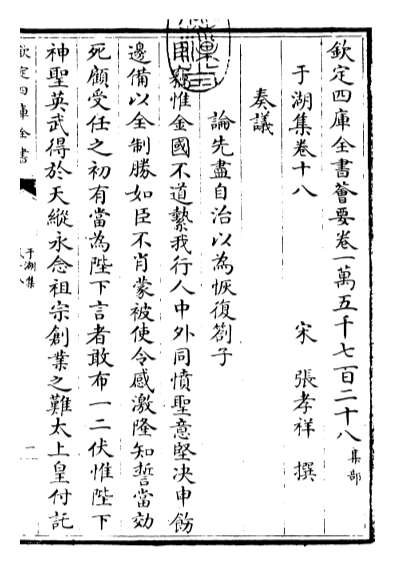 欽定四庫全書薈要卷一萬五千七百二十八 集部
于湖集卷十八 宋 張孝祥 撰
奏議
論先盡自治以為恢復劄子
臣竊惟金國不道縶我行人中外同憤聖意堅决申飭
邊備以全制勝如臣不肖蒙被使令感激隆知誓當効
死顧受任之初有當為陛下言者敢布一二伏惟陛下
神聖英武得於天縱永念祖宗創業之難太上皇付託
欽定四庫全書
于湖集
一